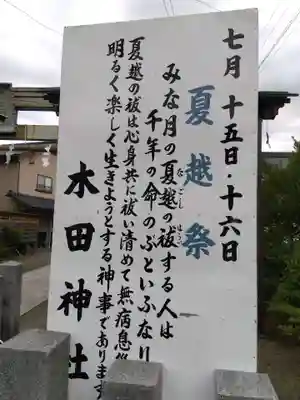 七月 十五日・十六日
夏越祭
みな月の夏越の祓する人は
千年の命のぶといふなり
夏越の祓は心身共に祓い清めて無病息災
明るく楽しく生きようとする神事であります
木田神社